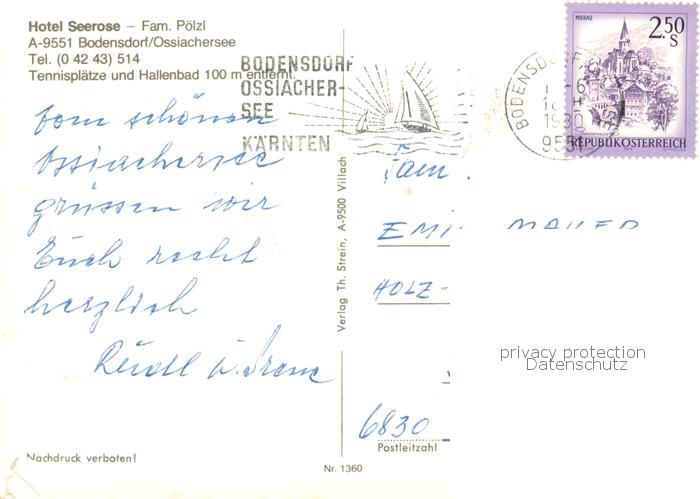 Hotel Seerose – Fam. Pölzl
A-9551 Bodensdorf/Ossiachersee
Tel. (0 42 43) 514
Tennisplätze und Hallenbad 100 m entfernt.
BODENSDORF
OSSIACHER-
SEE
KÄRNTEN
BODENSDORF
1980
9551
MURAU
2.50
S
REPUBLIK ÖSTERREICH
Vom schönen
Ossiachersee
grüssen wir
Euch recht
herzlich
Ruedl u. Irene
Verlag Th. Strein, A-9500 Villach
Fam.
HOLZ-
6830
Postleitzahl
privacy protection
Datenschutz
Nachdruck verboten!
Nr. 1360